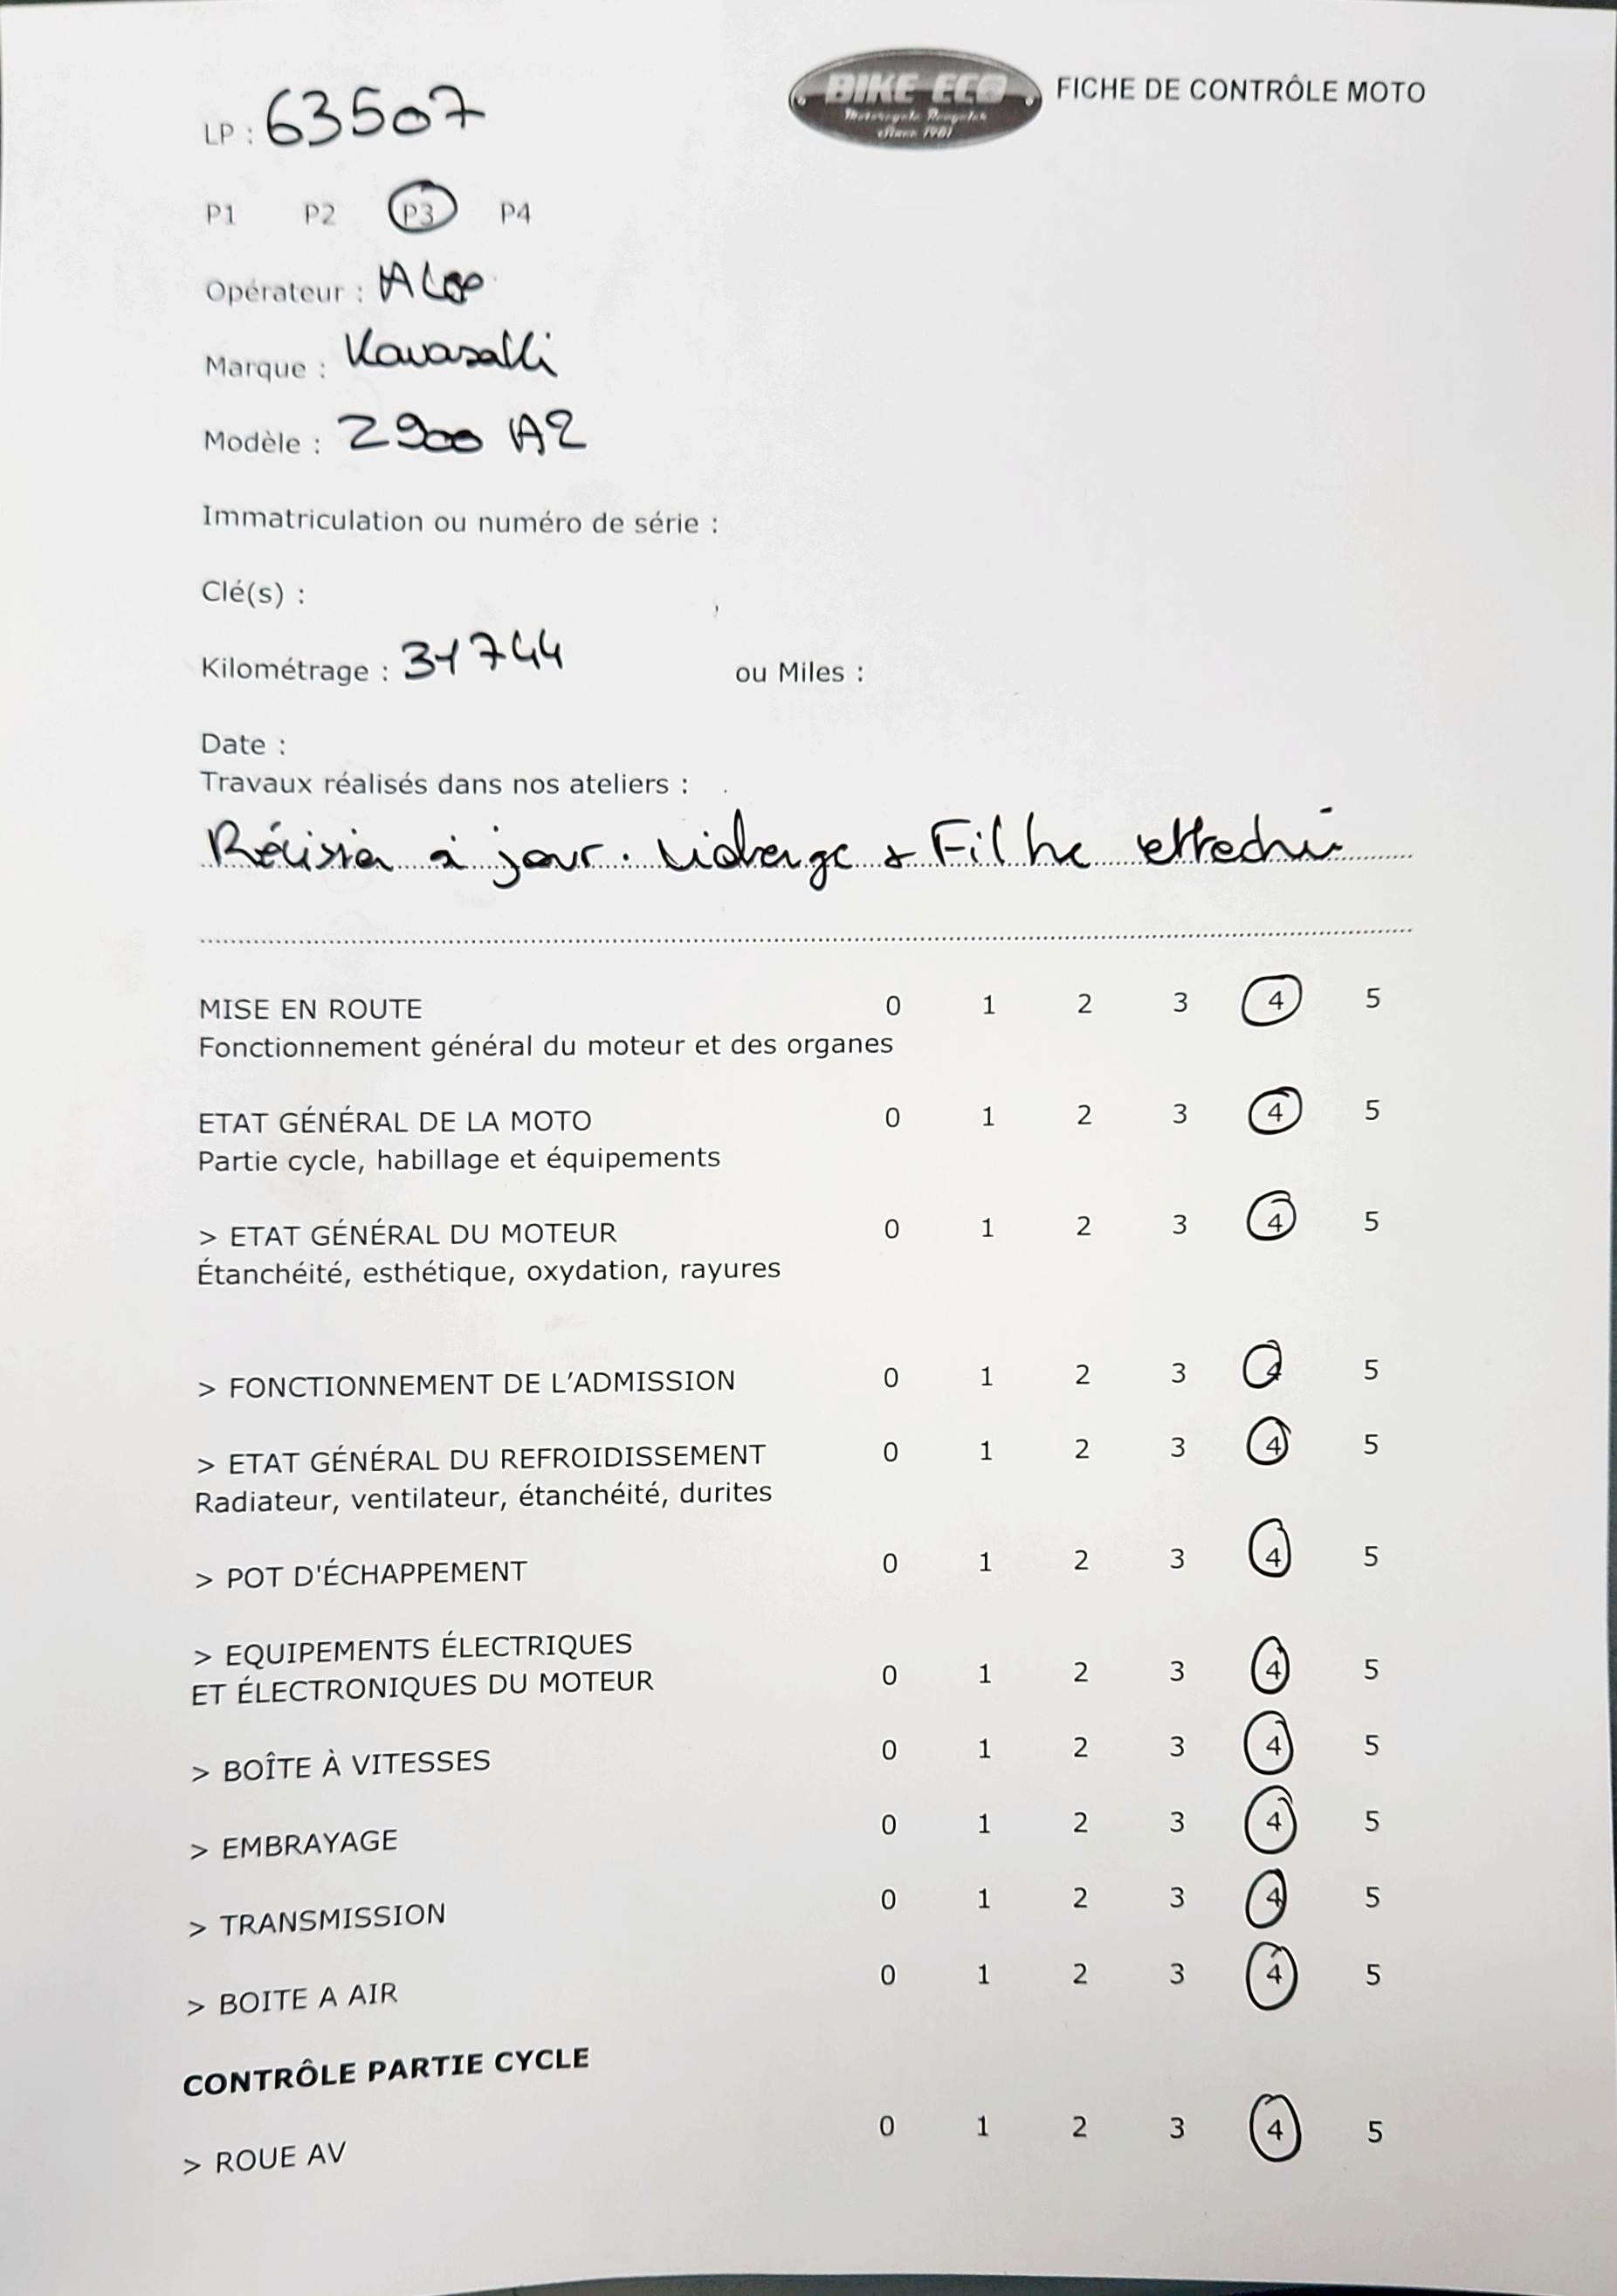 BIKE ECO
Motorcycle Recycler
Since 1981
FICHE DE CONTRÔLE MOTO
LP : 63507
P1 P2 P3 P4
Opérateur :
Marque : Kawasaki
Modèle : Z900 A2
Immatriculation ou numéro de série :
Clé(s) :
Kilométrage : 31744 ou Miles :
Date :
Travaux réalisés dans nos ateliers :
Révision à jour. Vidange + Filtre effectué
MISE EN ROUTE 0 1 2 3 4 5
Fonctionnement général du moteur et des organes
ETAT GÉNÉRAL DE LA MOTO 0 1 2 3 4 5
Partie cycle, habillage et équipements
> ETAT GÉNÉRAL DU MOTEUR 0 1 2 3 4 5
Étanchéité, esthétique, oxydation, rayures
> FONCTIONNEMENT DE L'ADMISSION 0 1 2 3 4 5
> ETAT GÉNÉRAL DU REFROIDISSEMENT 0 1 2 3 4 5
Radiateur, ventilateur, étanchéité, durites
> POT D'ÉCHAPPEMENT 0 1 2 3 4 5
> EQUIPEMENTS ÉLECTRIQUES
ET ÉLECTRONIQUES DU MOTEUR 0 1 2 3 4 5
> BOÎTE À VITESSES 0 1 2 3 4 5
> EMBRAYAGE 0 1 2 3 4 5
> TRANSMISSION 0 1 2 3 4 5
> BOITE A AIR 0 1 2 3 4 5
CONTRÔLE PARTIE CYCLE
> ROUE AV 0 1 2 3 4 5